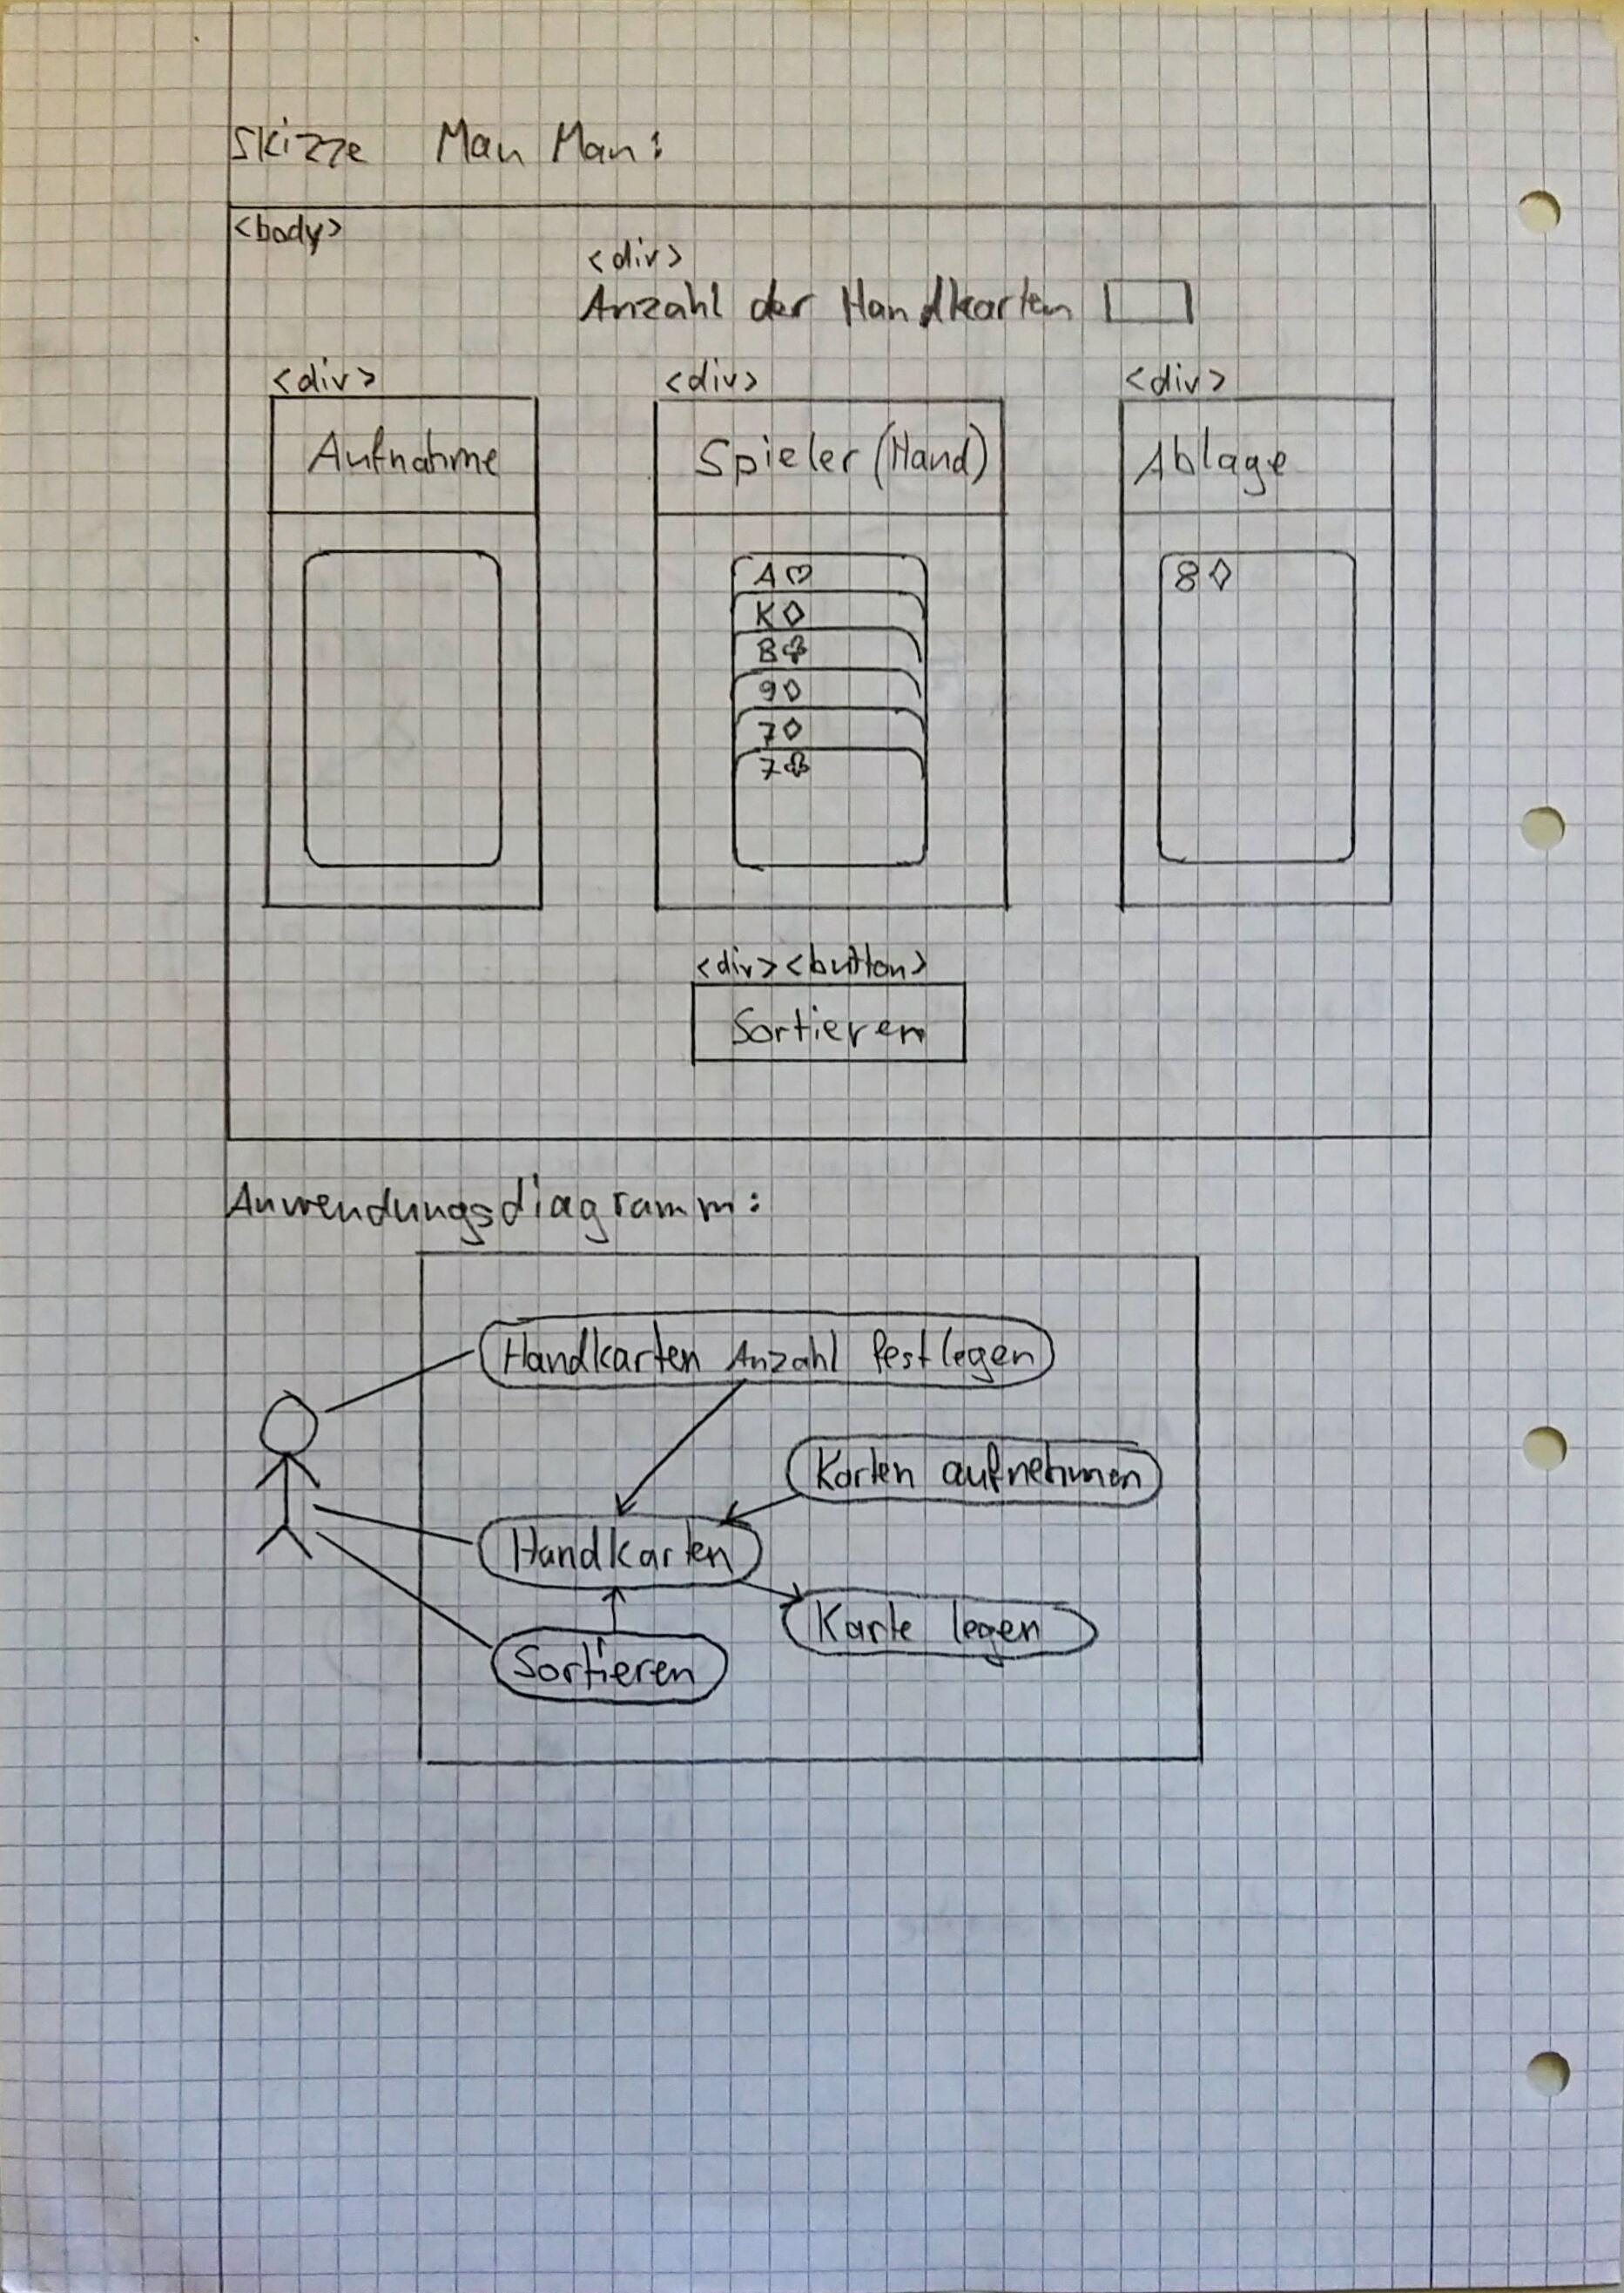 Skizze Mau Mau:
<body>
<div>
Anzahl der Handkarten
<div> <div> <div>
Aufnahme Spieler (Hand) Ablage
A♡ 8♢
K♢
B♧
9♢
7♢
7♧
<div><button>
Sortieren
Anwendungsdiagramm:
Handkarten Anzahl festlegen
Karten aufnehmen
Handkarten
Karte legen
Sortieren